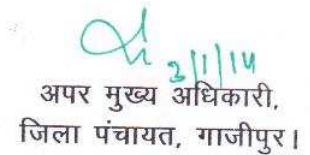 3/1/14
अपर मुख्य अधिकारी,
जिला पंचायत, गाजीपुर।